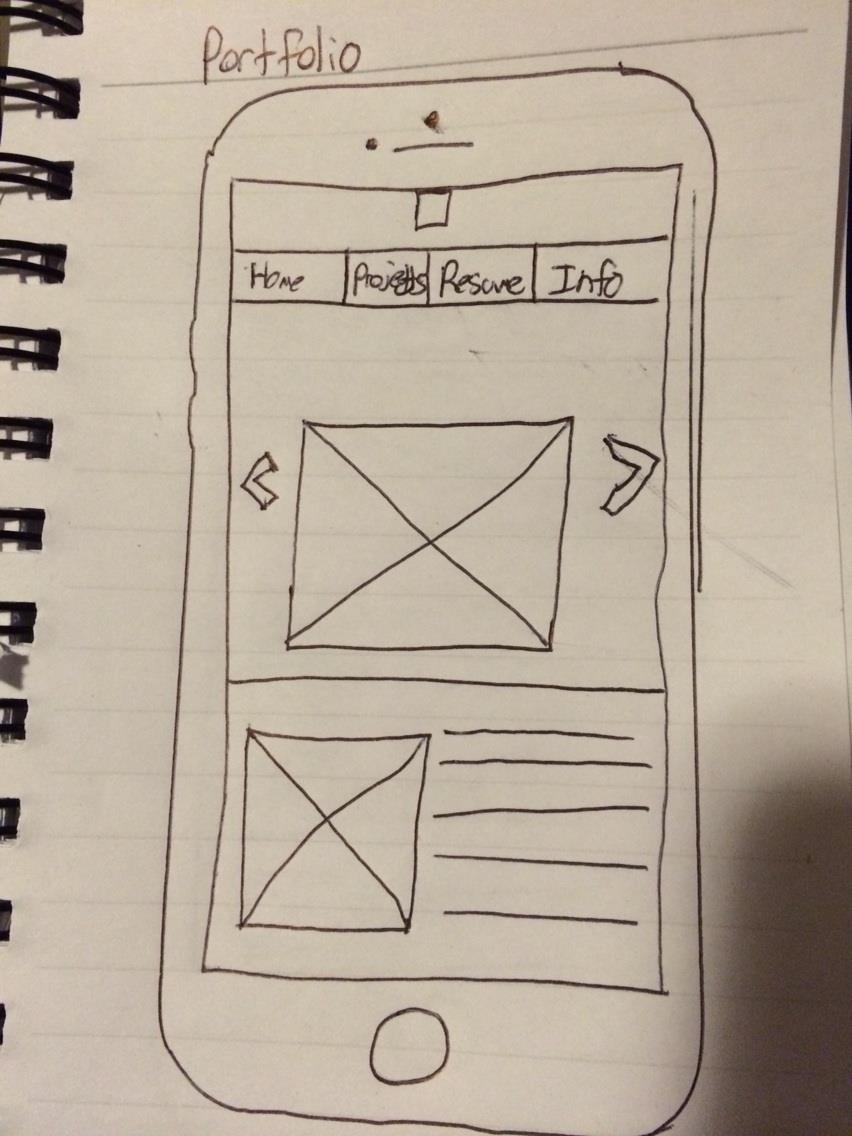 Portfolio
Home Projects Resume Info